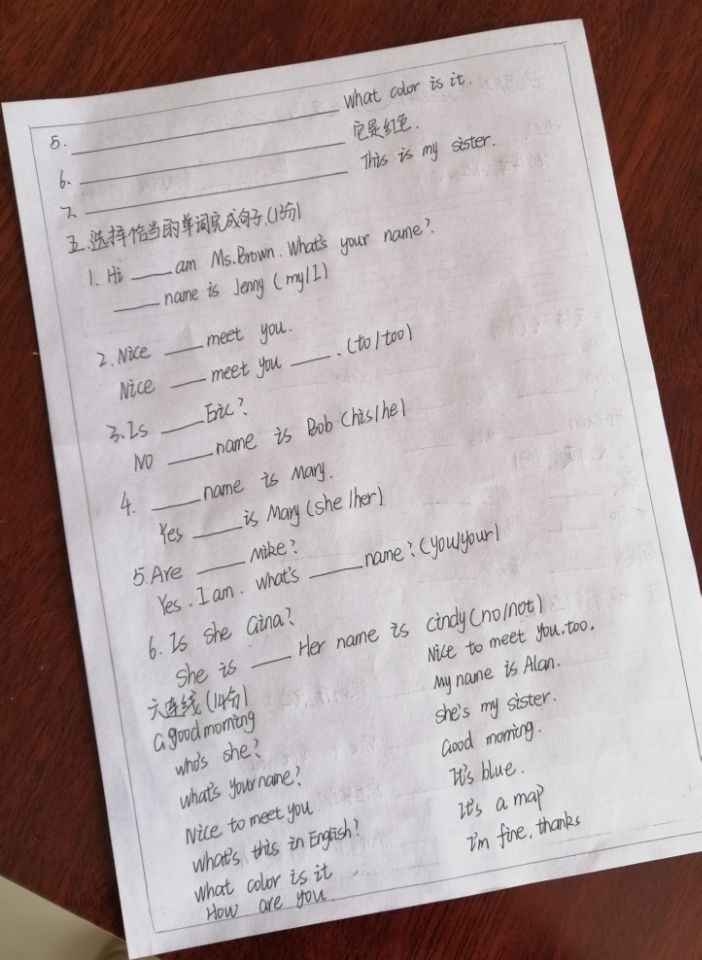 5. ______ What color is it.
6. ______ 它是红色.
7. ______ This is my sister.
五.选择恰当的单词完成句子.(13分)
1. Hi ____ am Ms.Brown. What's your name?
____ name is Jenny (my/I)
2. Nice ____ meet you.
Nice ____ meet you ____. (to/too)
3. Is ____ Eric?
NO ____ name is Bob (his/he)
4. ____ name is Mary.
Yes ____ is Mary (she/her)
5. Are ____ Mike?
Yes. I am. what's ____ name? (you/your)
6. Is she Gina?
She is ____ Her name is cindy (no/not)
六连线 (14分)
a good morning
who's she?
what's your name?
Nice to meet you
what's this in English?
what color is it
How are you.
Nice to meet you.too.
My name is Alan.
she's my sister.
Good morning.
It's blue.
It's a map
I'm fine, thanks